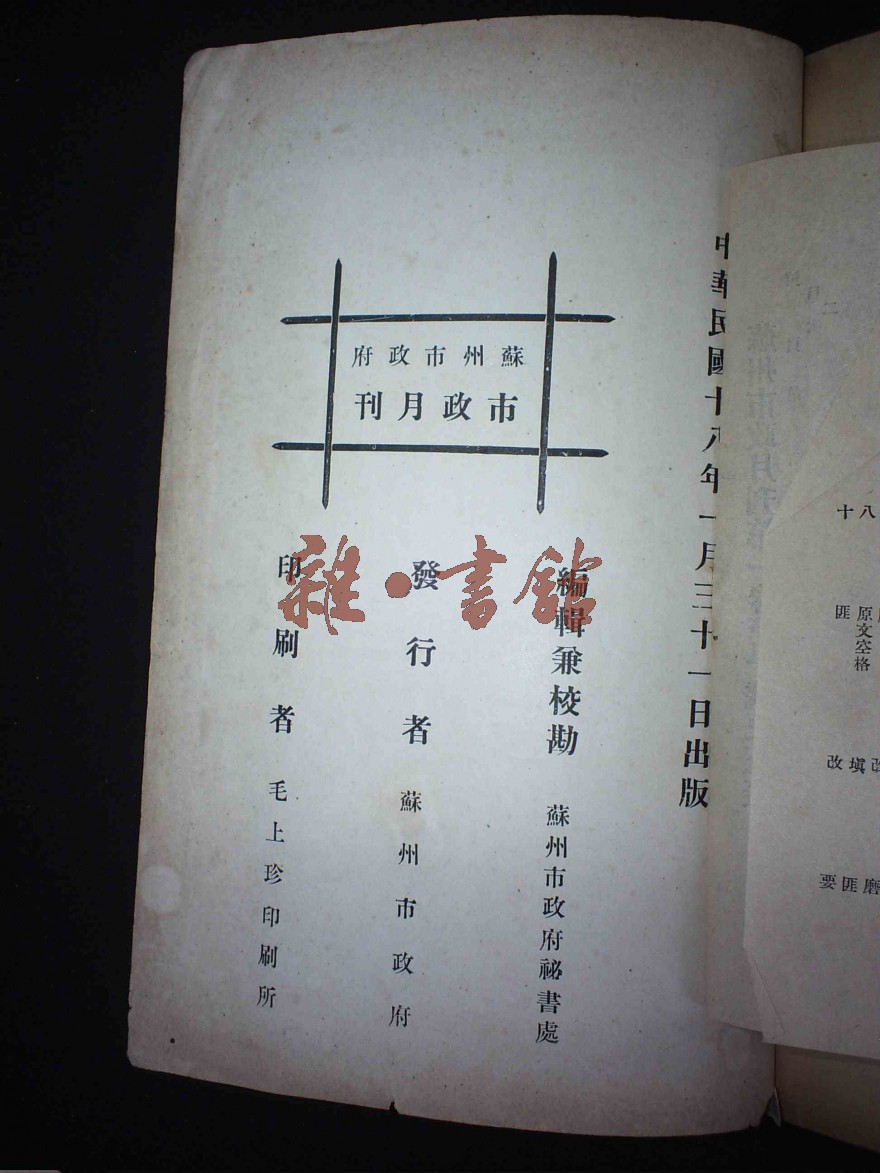 中華民國十八年一月三十一日出版
蘇州市政府
市政月刊
編輯兼校勘 蘇州市政府祕書處
發行者 蘇州市政府
印刷者 毛上珍印刷所
雜·書館
八十
原文空格
匪
填改
磨匪要